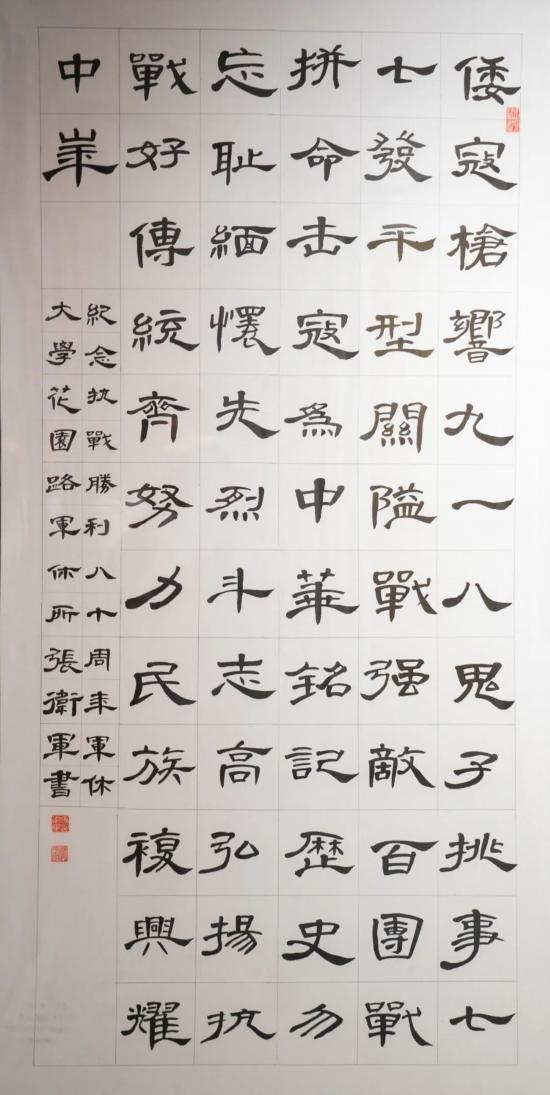 倭寇槍響九一八鬼子挑事七
七發平型關隘戰强敵百團戰
拼命击寇為中華銘記歷史勿
忘耻緬懷先烈斗志高弘揚抗
戰好傳統齊努力民族複興耀
中崋
紀念抗戰勝利八十周年軍休
大學花園路軍休所張衛軍書